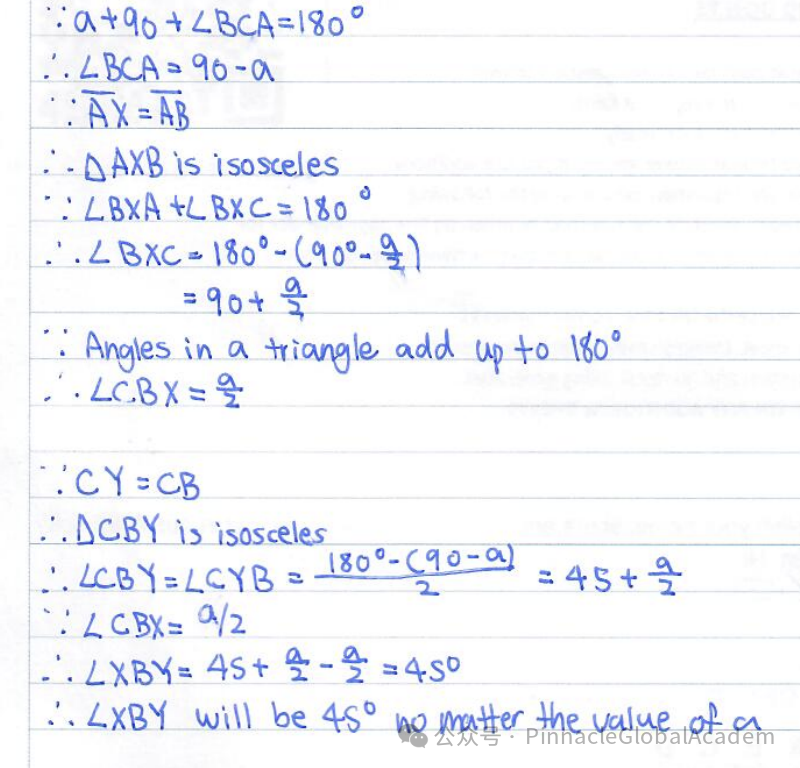 ∵ a+90+∠BCA=180°
∴ ∠BCA = 90-a
∵ A̅X̅ = A̅B̅
∴ ΔAXB is isosceles
∵ ∠BXA +∠BXC = 180°
∴ ∠BXC = 180° - (90° - a/2)
= 90 + a/2
∵ Angles in a triangle add up to 180°
∴ ∠CBX = a/2
∵ CY = CB
∴ ΔCBY is isosceles
∴ ∠CBY = ∠CYB = (180° - (90 - a))/2 = 45 + a/2
∵ ∠CBX = a/2
∴ ∠XBY = 45 + a/2 - a/2 = 45°
∴ ∠XBY will be 45° no matter the value of a
公众号 · PinnacleGlobalAcadem